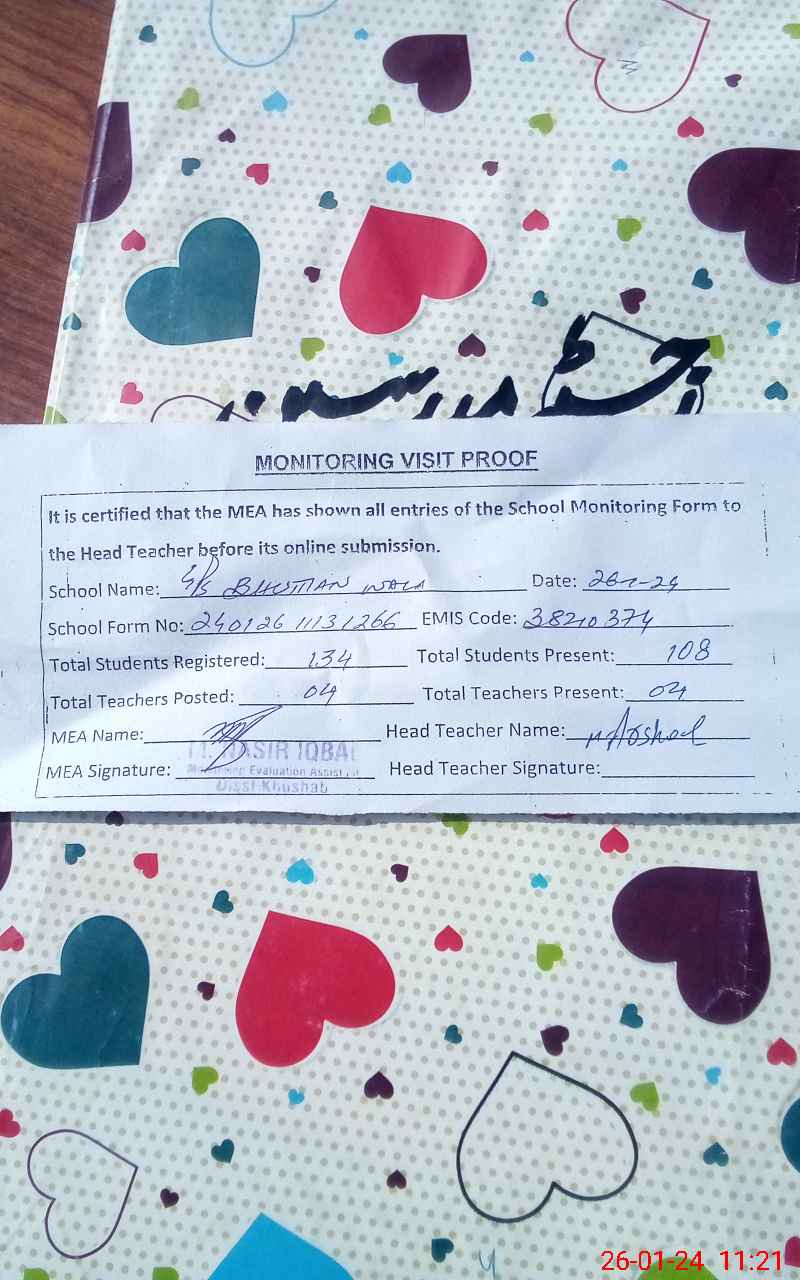 MONITORING VISIT PROOF
It is certified that the MEA has shown all entries of the School Monitoring Form to
the Head Teacher before its online submission.
School Name: BHUTTIAN WALA Date: 26-1-24
School Form No: 240126 11131266 EMIS Code: 38210374
Total Students Registered: 134 Total Students Present: 108
Total Teachers Posted: 04 Total Teachers Present: 04
MEA Name: Head Teacher Name: M Arshad
NASIR IQBAL
MEA Signature: Head Teacher Signature:
Monitoring Evaluation Assistant
Disst Khushab
26-01-24 11:21